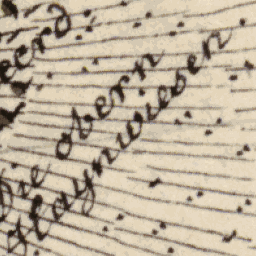 eerd
Die obern
Haynwiesen.